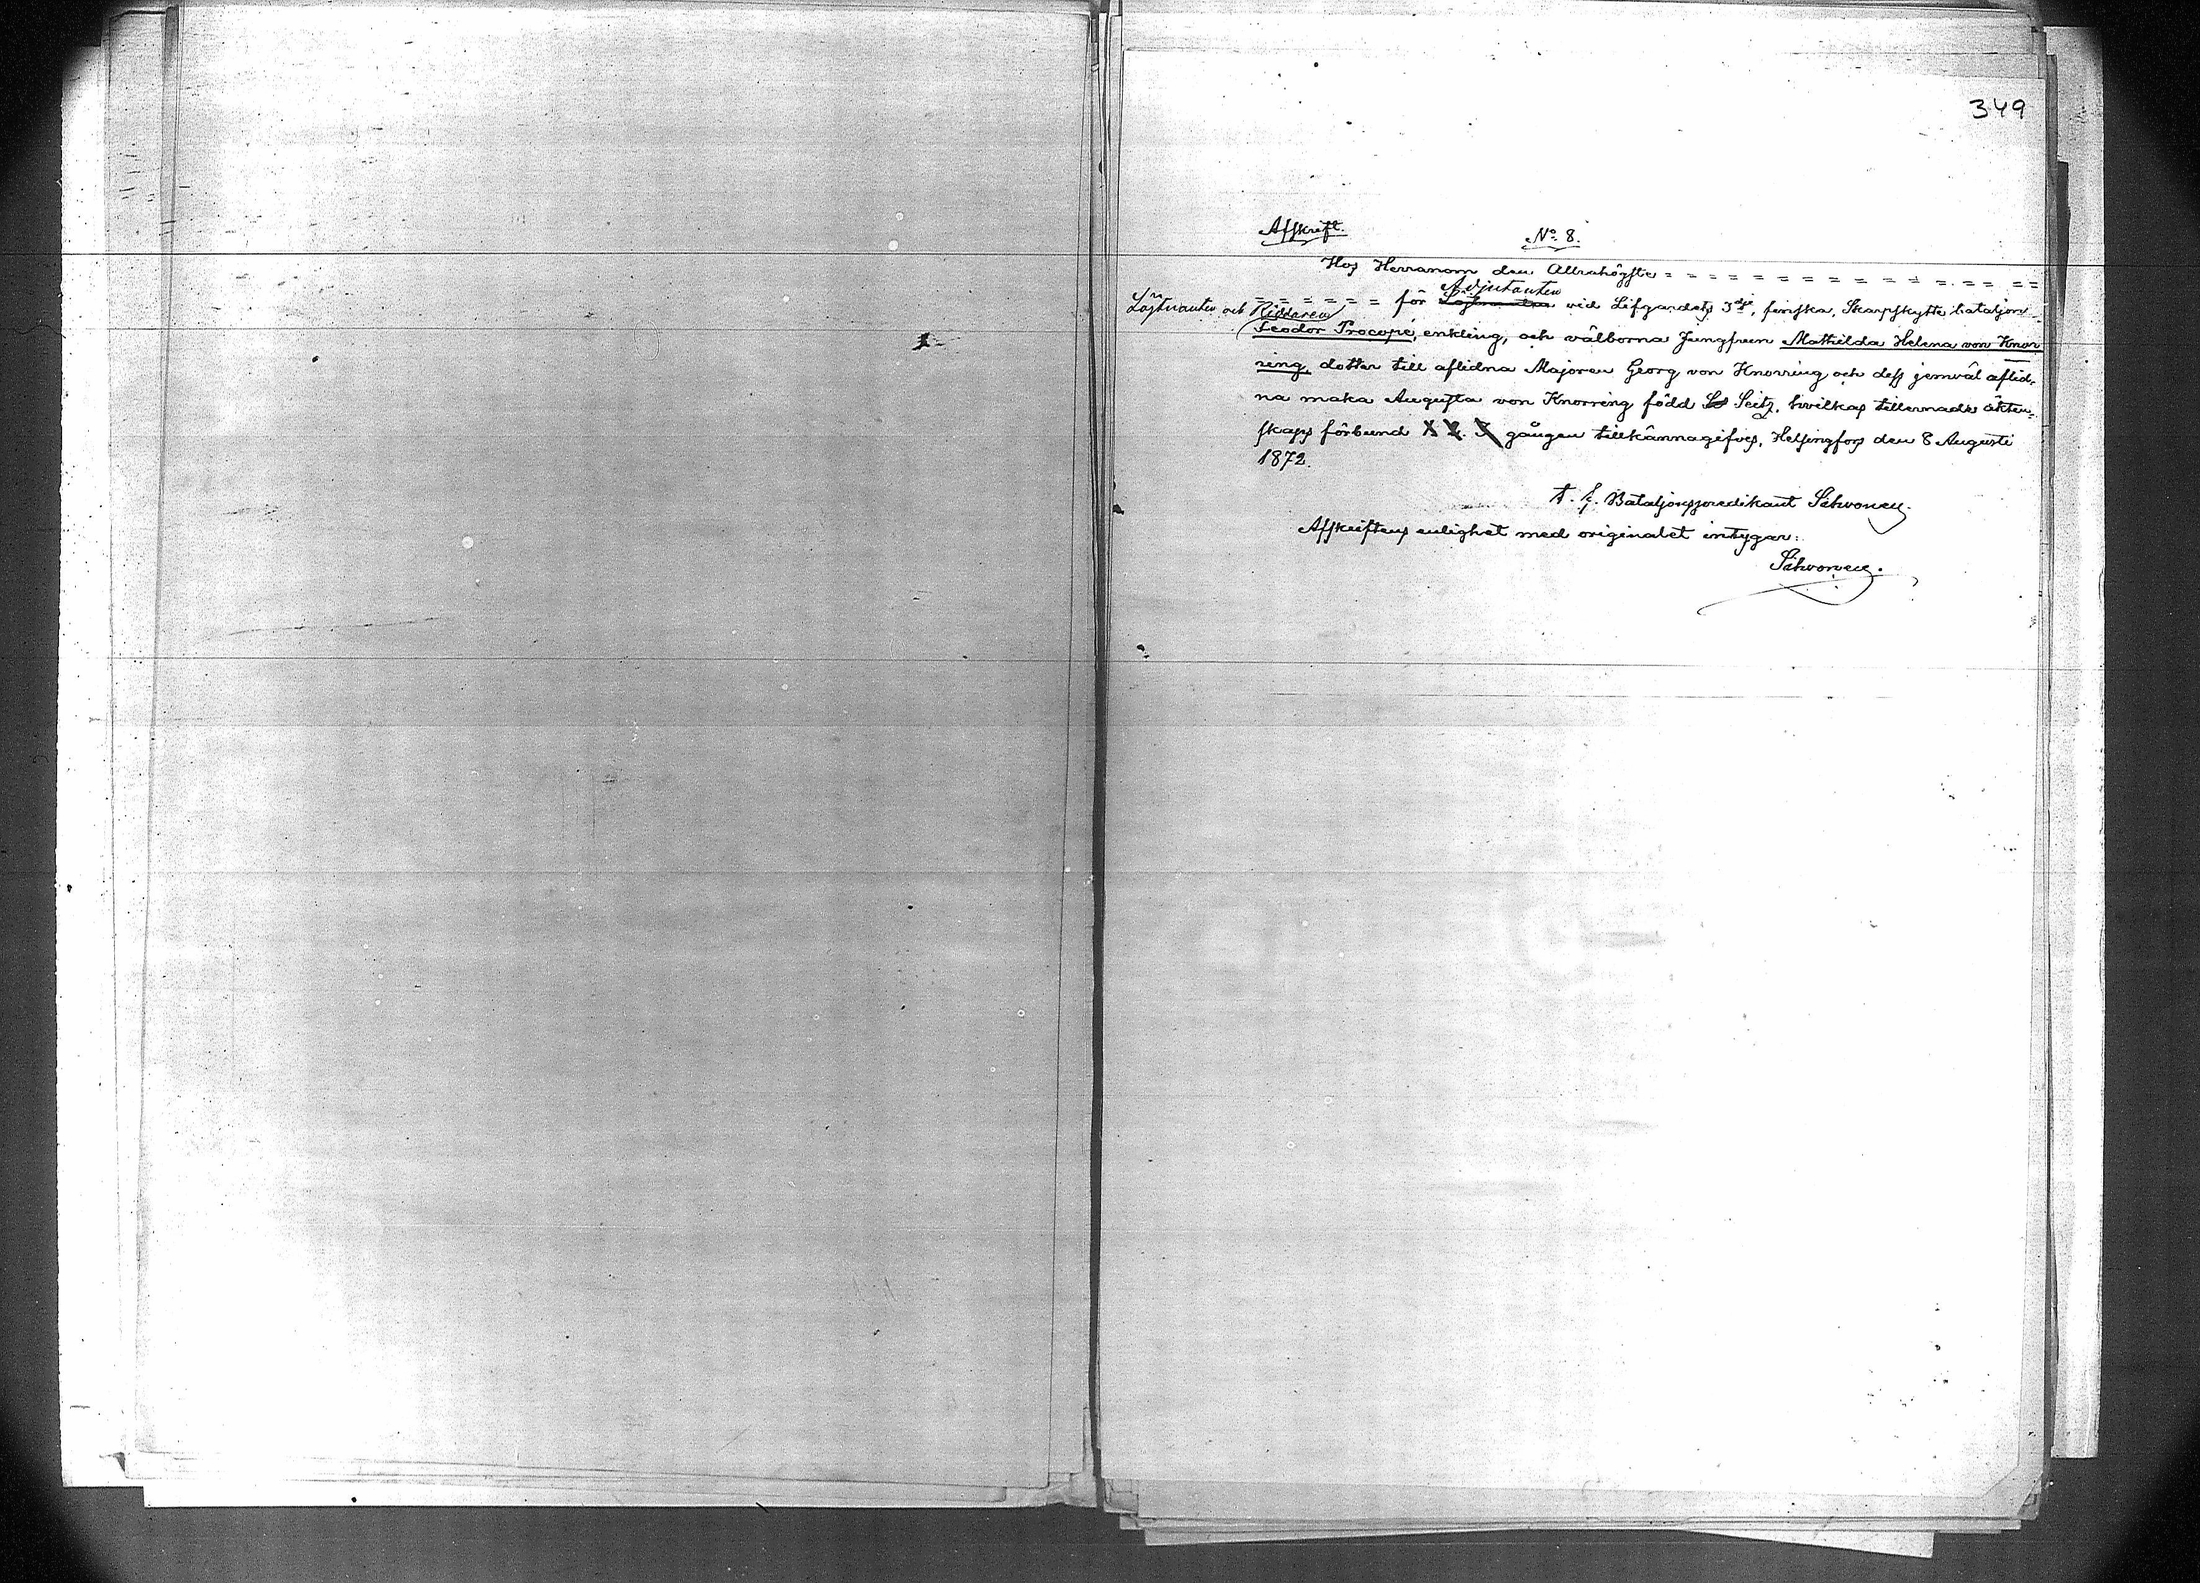 349
Afskrift.
No 8.
Hos Herranom den Allrahögste = = = = = = = = = = = = = = = =
Adjutanten
= = = = = = för Löjtnanten vid Lifgardets 3dje, finska, Skarpskytte bataljon
Löjtnanten och Riddaren
Feodor Procopé, enkling, och välborna Jungfrun Mathilda Helena von Knor
ring, dotter till aflidna Majoren Georg von Knorring och dess jemväl aflid-
na maka Augusta von Knorring född Seitz, hvilkas tillernade äkten-
skaps förbund 1. 2. 3 gången tillkännagifves, Helsingfors den 8 Augusti
1872.
t. f. Bataljonspredikant Sihvonen.
Afskriftens enlighet med originalet intygar:
Sihvonen.